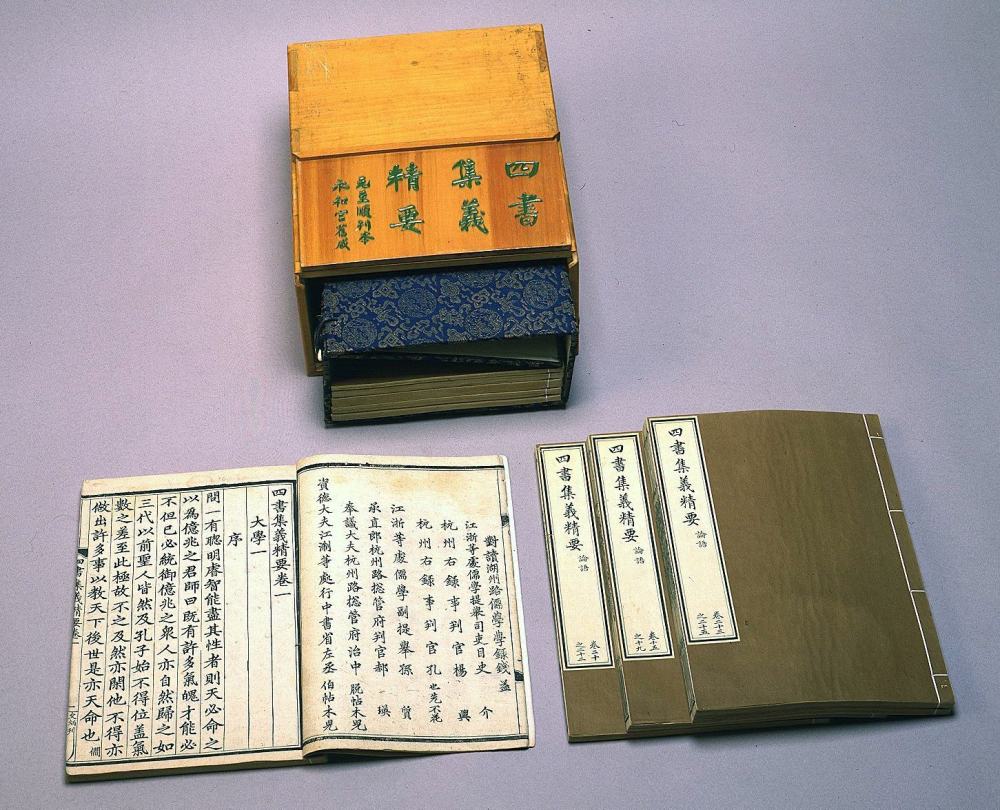 四書
集義
精要
元至順刊本
永和宮舊藏
對讀湖州路儒學學錄錢益
江浙等處儒學提舉司吏目史介
杭州右錄事判官楊興
杭州右錄事判官孔也先不花
江浙等處儒學副提舉孫質
承直郎杭州路總管府判官郝瑛
奉議大夫杭州路總管府治中脫帖木兒
資德大夫江浙等處行中書省左丞伯帖木兒
四書集義精要卷一
大學一
序
問一有聰明睿智能盡其性者則天必命之
以為億兆之君師曰既有許多氣魄才能必
不但已必統御億兆之衆人亦自然歸之如
三代以前聖人皆然及孔子始不得位蓋氣
數之差至此極故不之及然亦閑他不得亦
做出許多事以教天下後世是亦天命也 僩
四書集義精要卷一
四書集義精要 論語 卷二十三之二十五
四書集義精要 論語 卷十五之十九
四書集義精要 論語 卷二十之二十二